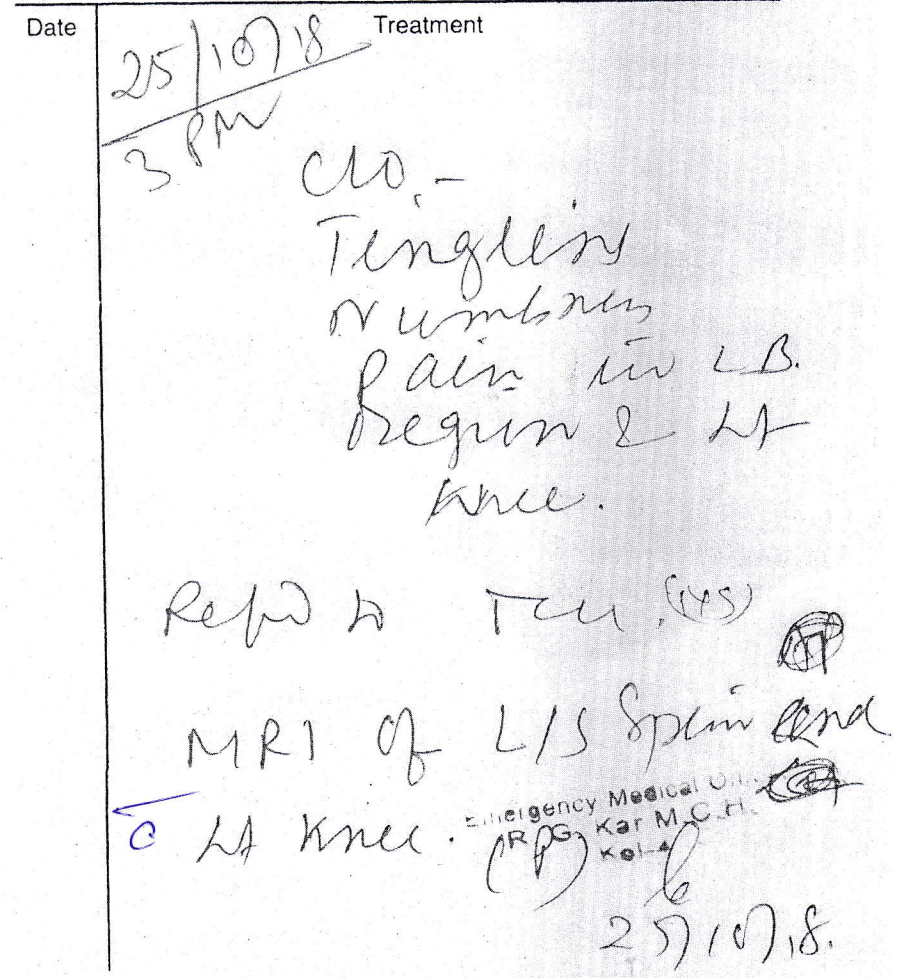 Date Treatment
25/10/18
3 PM
C/O,-
Tingling
Numbness
Pain in LB.
region & Lt
Knee.
Refd to
MRI of L/S Spine and
Lt Knee.
Emergency Medical
R. G. Kar M.C.H.
Kol-4
(P)
25/10/18.